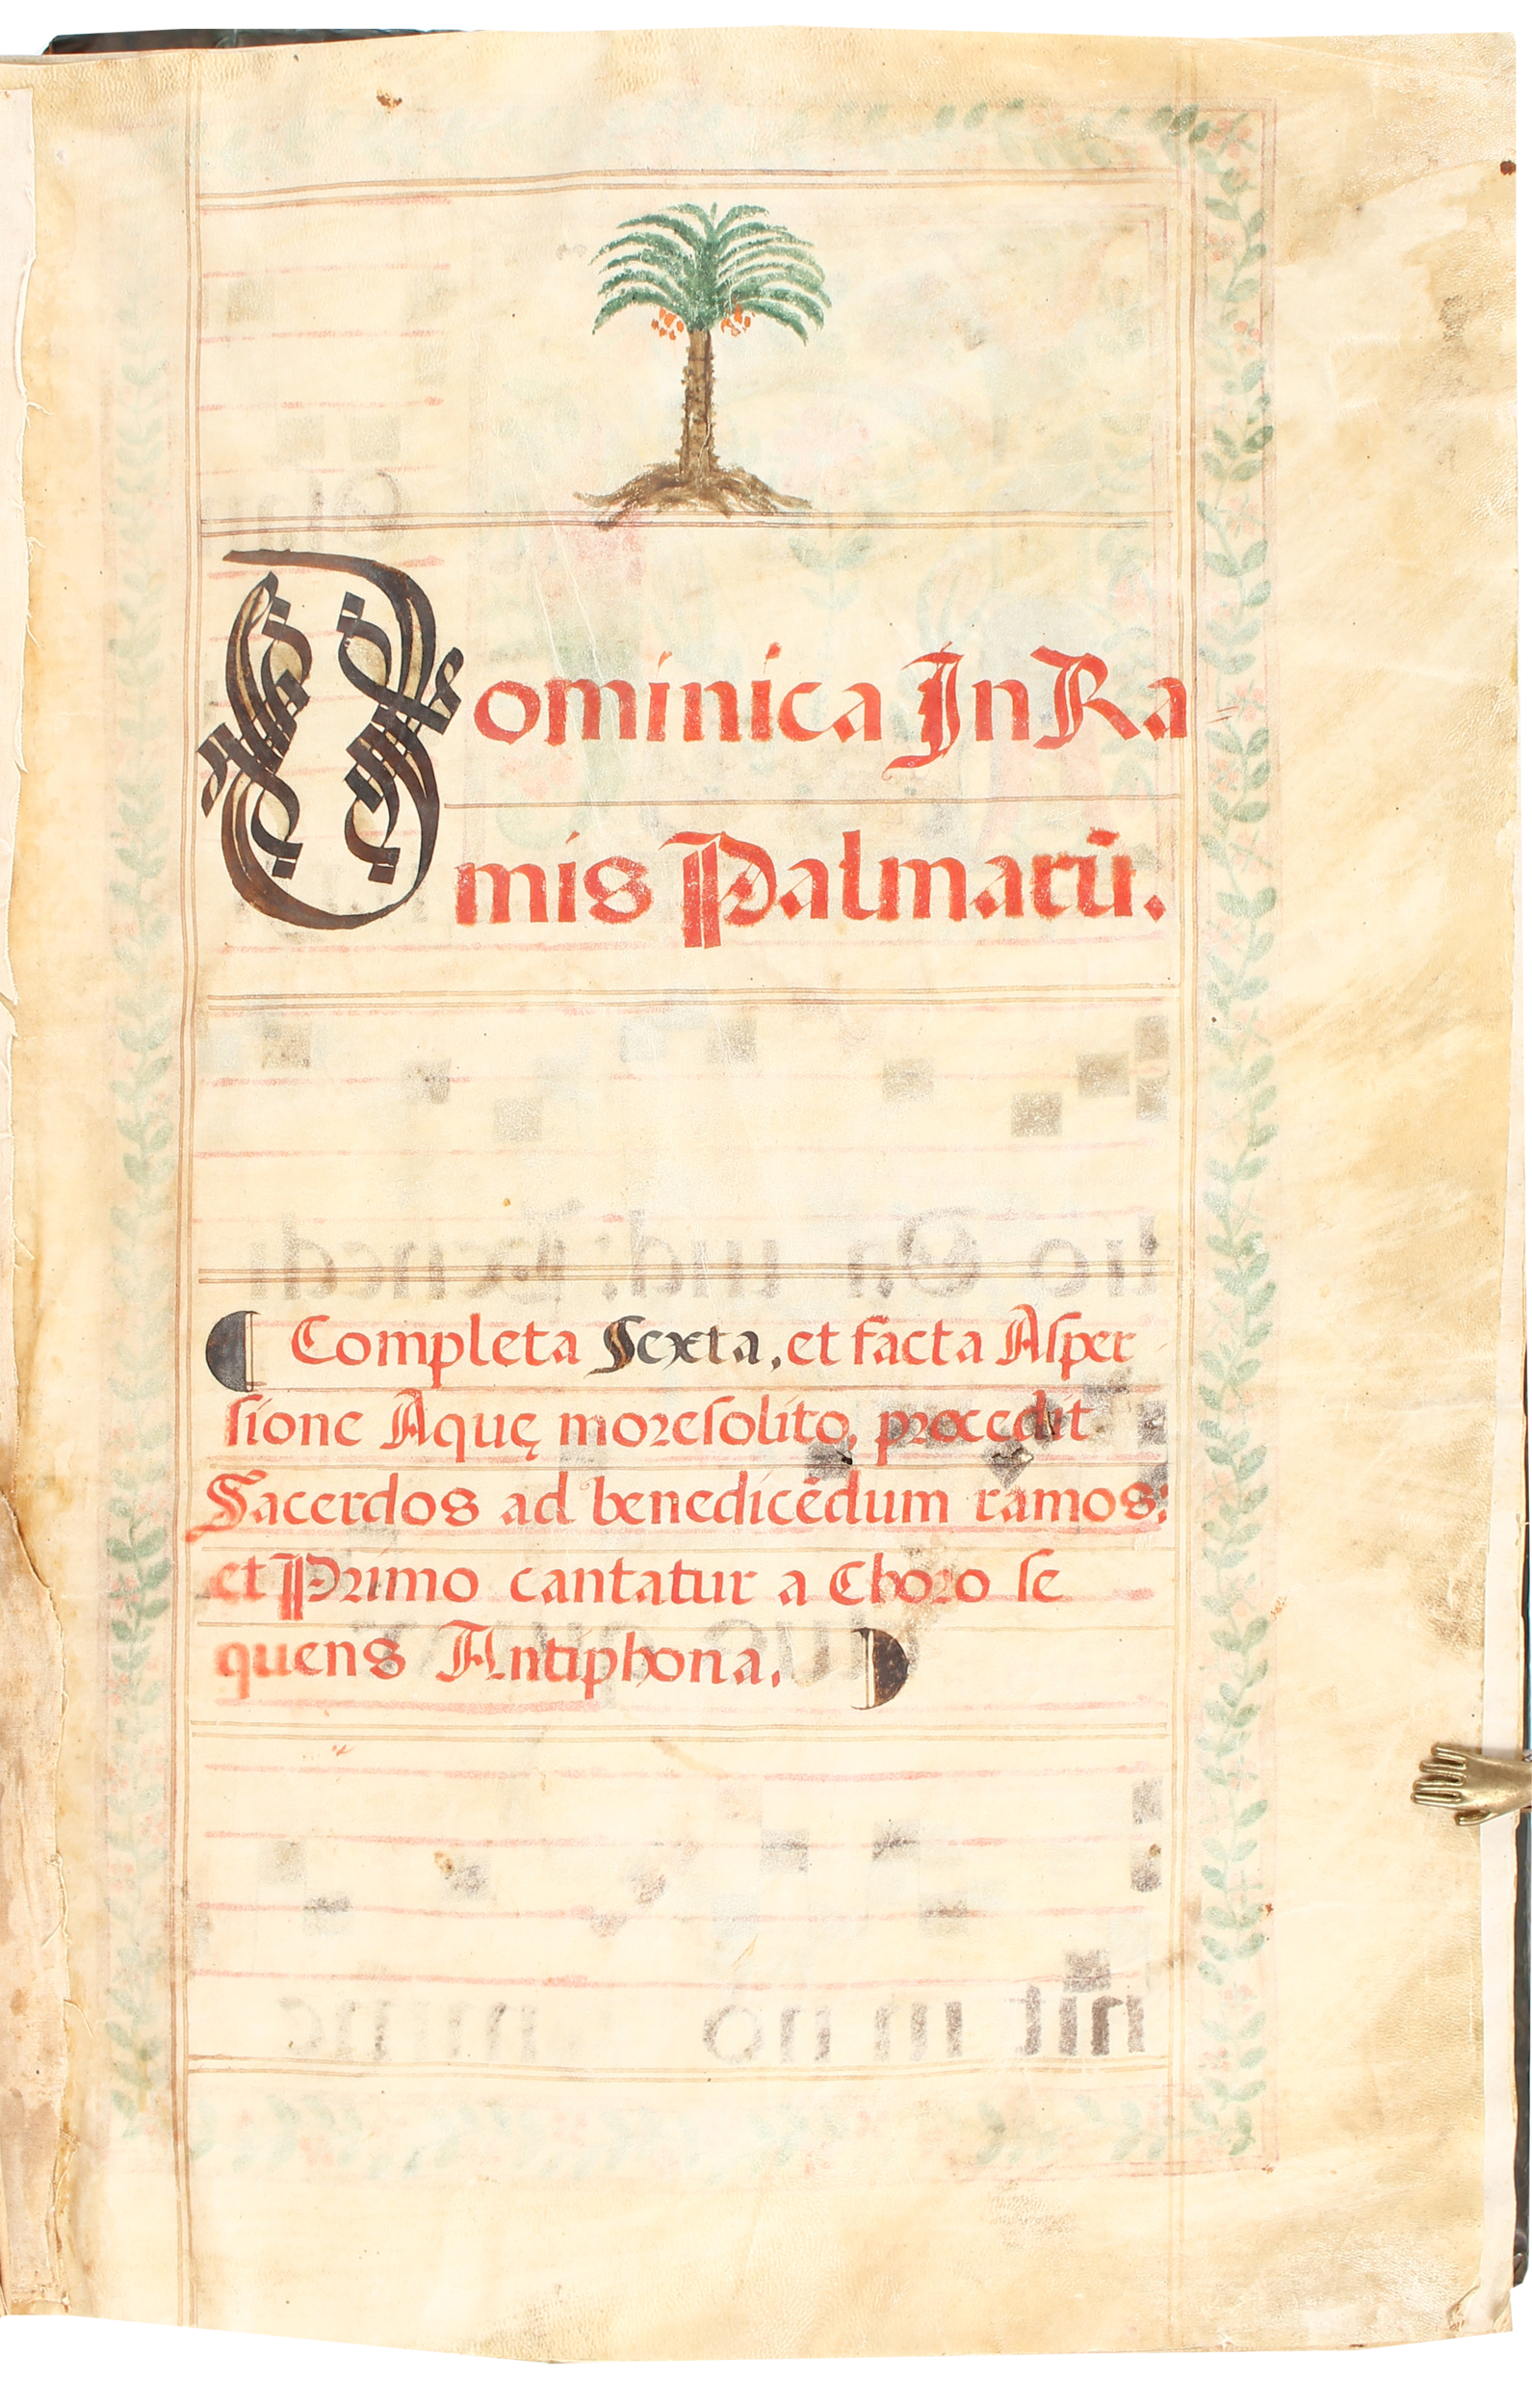 Dominica In Ra
mis Palmarū.
Completa Sexta, et facta Asper
sione Aquę more solito, procedit
Sacerdos ad benedicēdum ramos:
et Primo cantatur a Choro se
quens Antiphona.